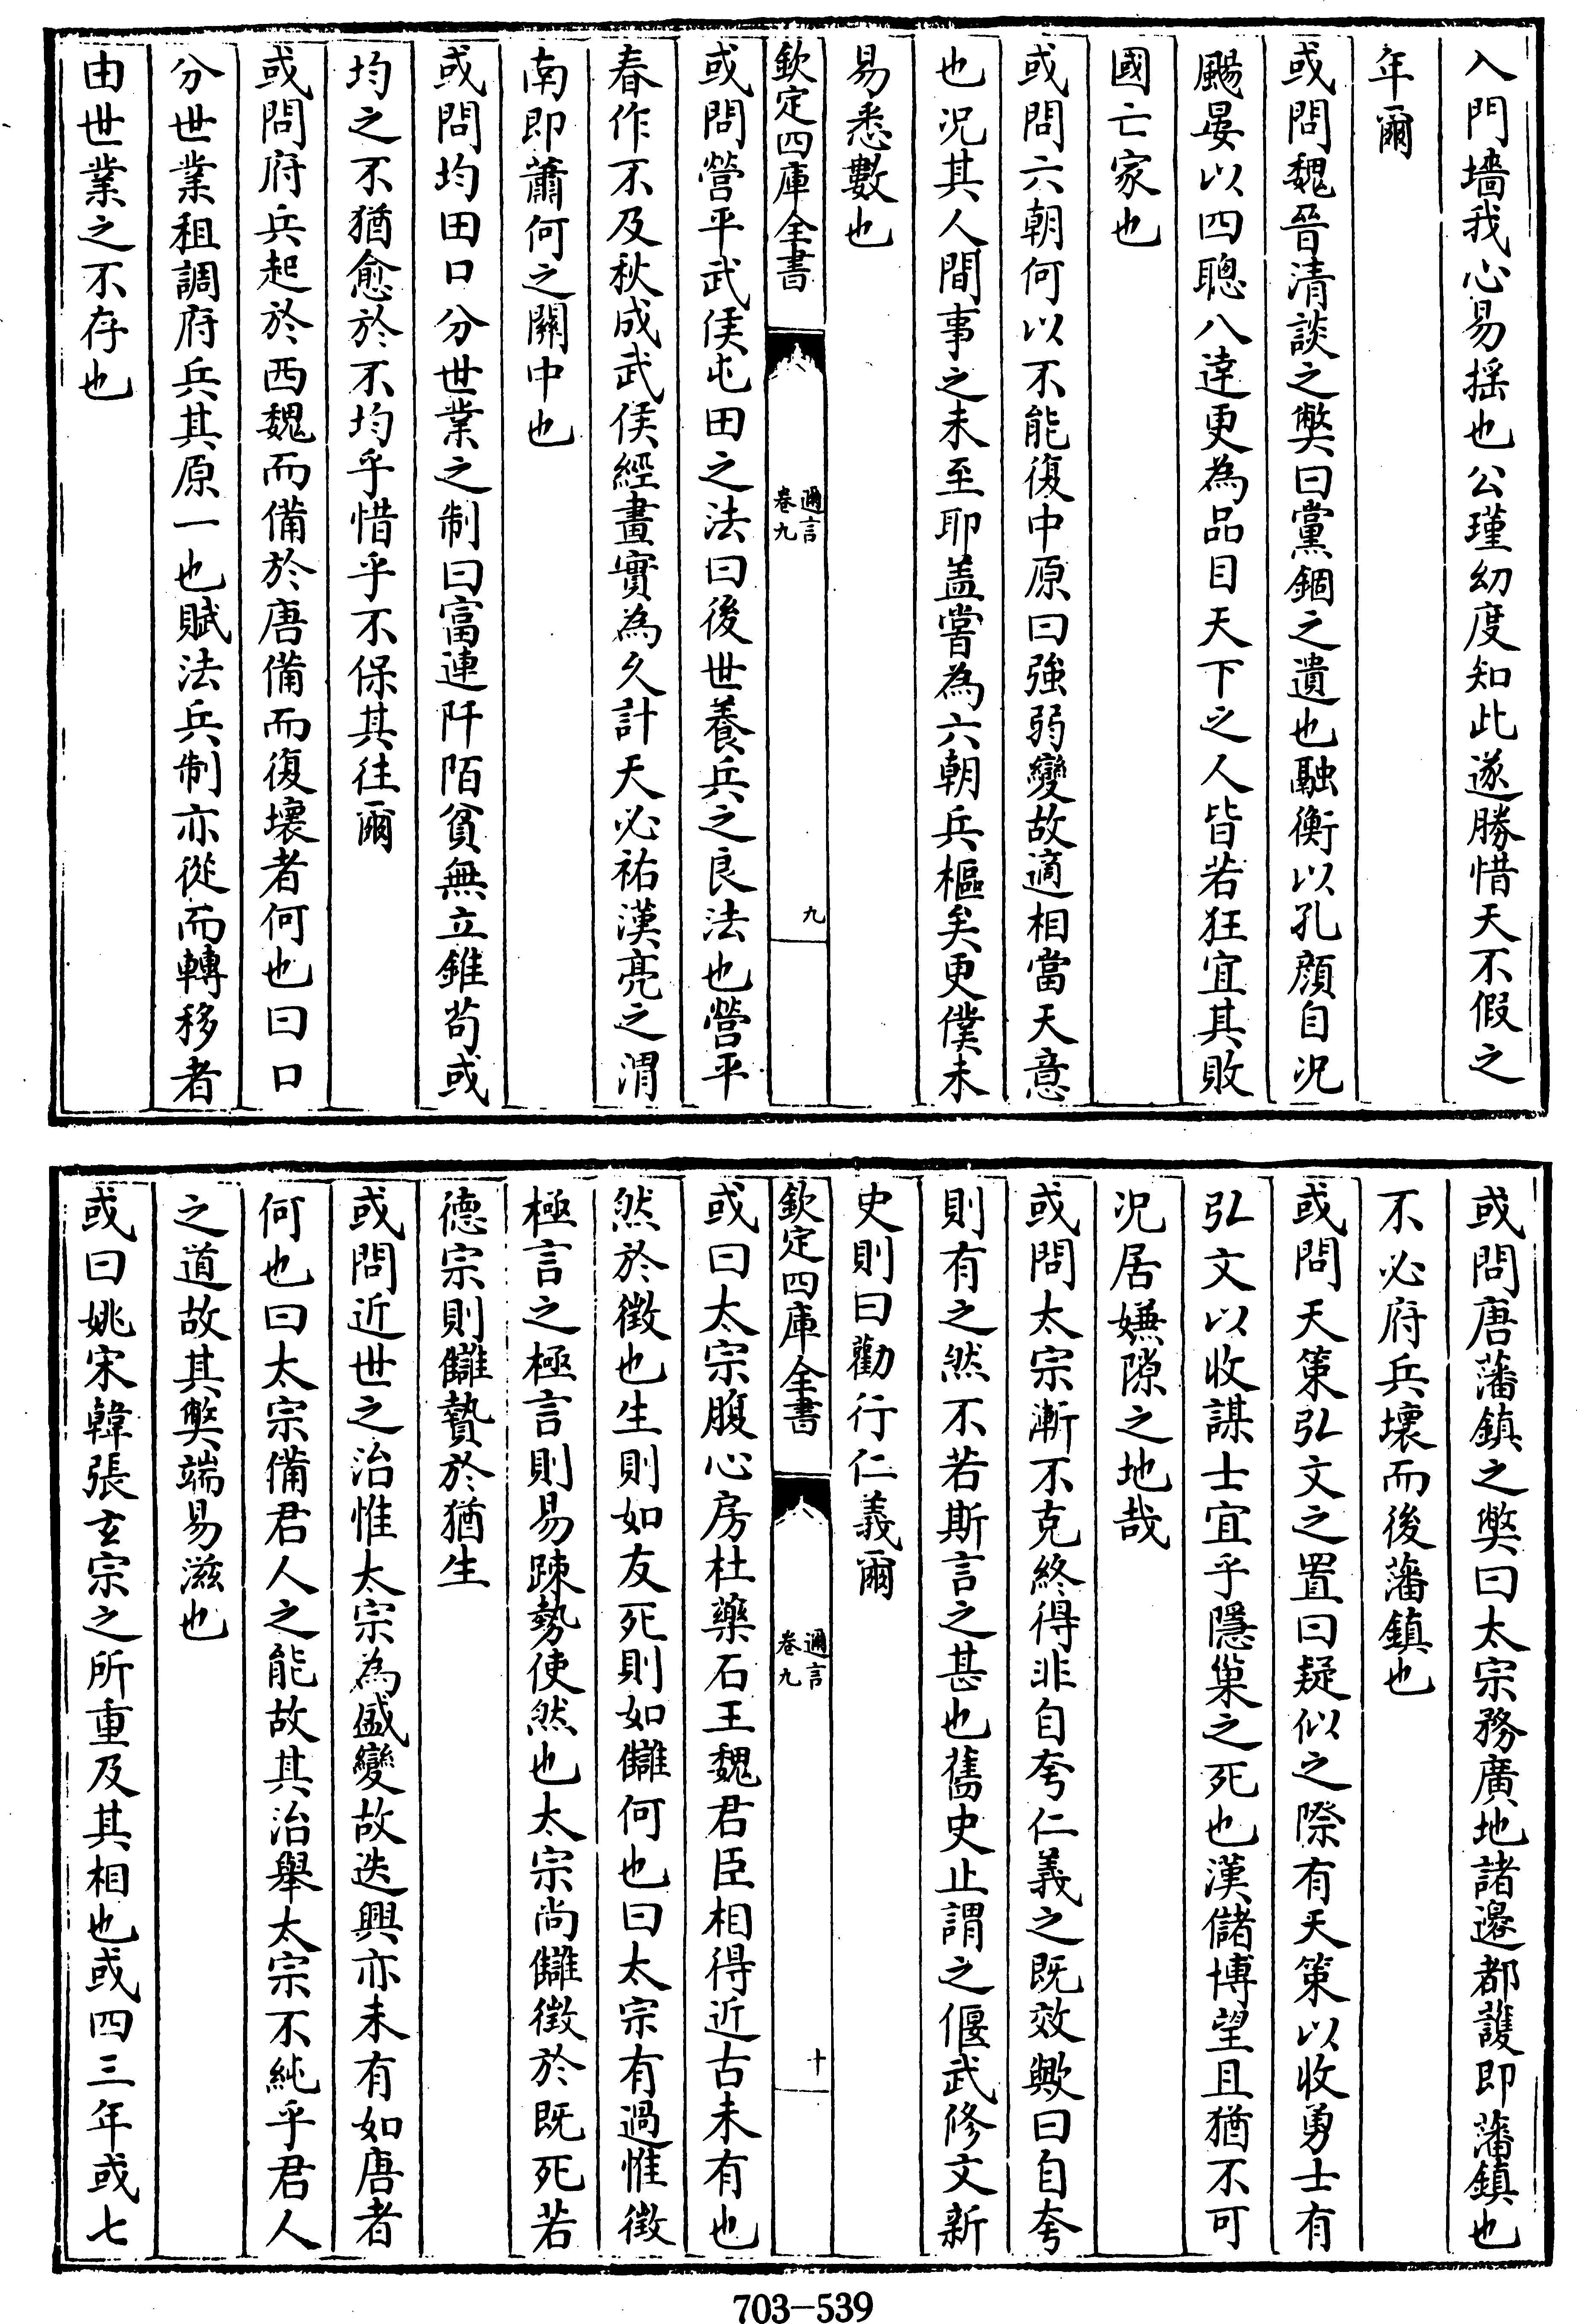 入門墻我心易揺也公瑾幼度知此遂勝惜天不假之
年爾
或問魏晉清談之弊曰黨錮之遺也融衡以孔顔自況
颺晏以四聰八逹更為品目天下之人皆若狂宜其敗
國亡家也
或問六朝何以不能復中原曰強弱變故適相當天意
也況其人間事之未至耶盖嘗為六朝兵樞矣更僕未
易悉數也
欽定四庫全書
邇言
卷九
九
或問營平武侯屯田之法曰後世養兵之良法也營平
春作不及秋成武侯經畫實為久計天必祐漢亮之渭
南即蕭何之關中也
或問均田口分世業之制曰富連阡陌貧無立錐苟或
均之不猶愈於不均乎惜乎不保其往爾
或問府兵起於西魏而備於唐備而復壞者何也曰口
分世業租調府兵其原一也賦法兵制亦從而轉移者
由世業之不存也
或問唐藩鎮之弊曰太宗務廣地諸邊都護即藩鎮也
不必府兵壞而後藩鎮也
或問天策弘文之置曰疑似之際有天策以收勇士有
弘文以收謀士宜乎隱巢之死也漢儲博望且猶不可
況居嫌隙之地哉
或問太宗漸不克終得非自夸仁義之既效歟曰自夸
則有之然不若斯言之甚也舊史止謂之偃武修文新
史則曰勸行仁義爾
欽定四庫全書
邇言
卷九
十
或曰太宗腹心房杜藥石王魏君臣相得近古未有也
然於徴也生則如友死則如讎何也曰太宗有過惟徴
極言之極言則易踈勢使然也太宗尚讎徴於既死若
德宗則讎贄於猶生
或問近世之治惟太宗為盛變故迭興亦未有如唐者
何也曰太宗備君人之能故其治舉太宗不純乎君人
之道故其弊端易滋也
或曰姚宋韓張玄宗之所重及其相也或四三年或七
703-539